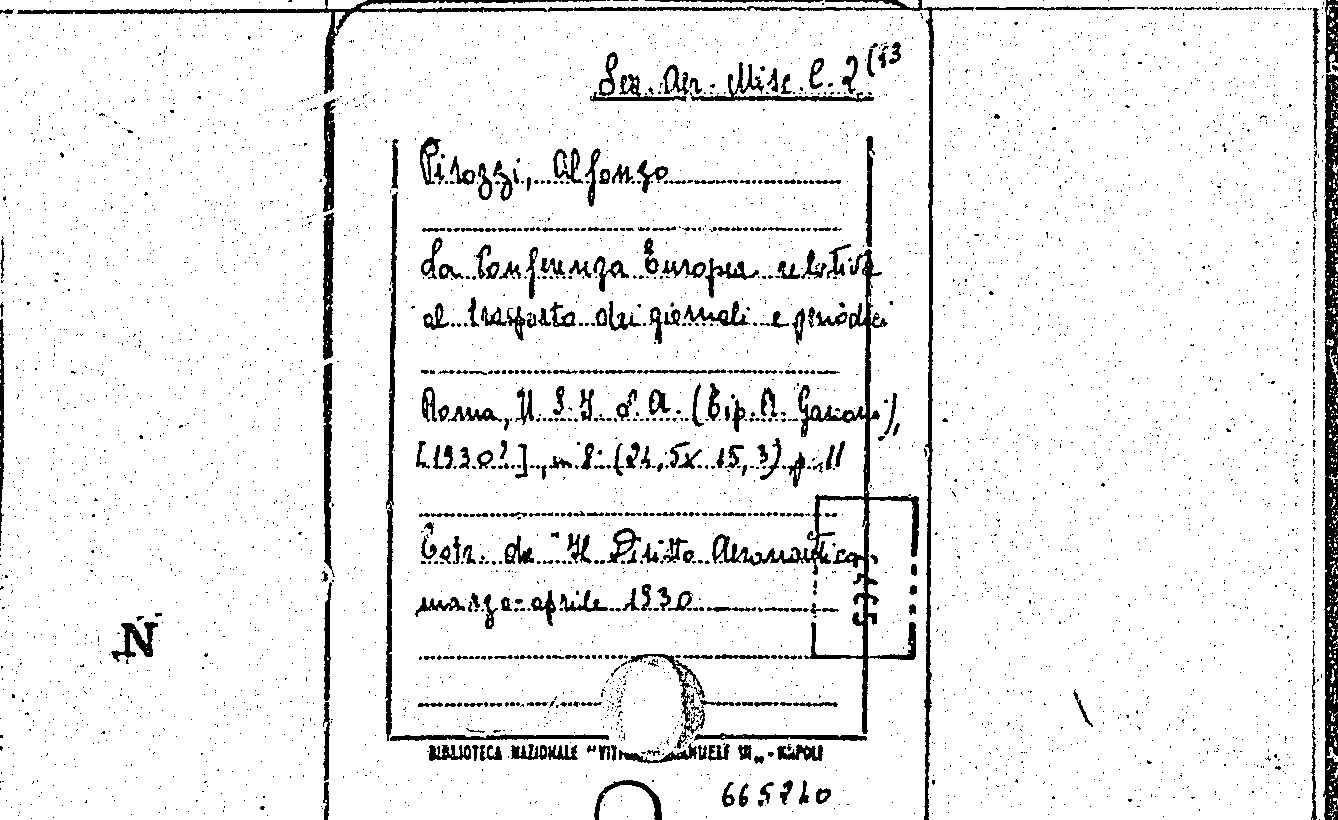 Sez. Aer. Misc. C. 2 (13
Pirozzi, Alfonso
La Conferenza Europea relativa
al trasporto dei giornali e periodici
Roma, U. S. I. d. A. (Tip. A. Garroni),
[1930?], in 8° (24,5x 15,3) p. 11
Estr. da "Il Diritto Aeronautico„
marzo-aprile 1930
BIBLIOTECA NAZIONALE - NAPOLI
665740
N